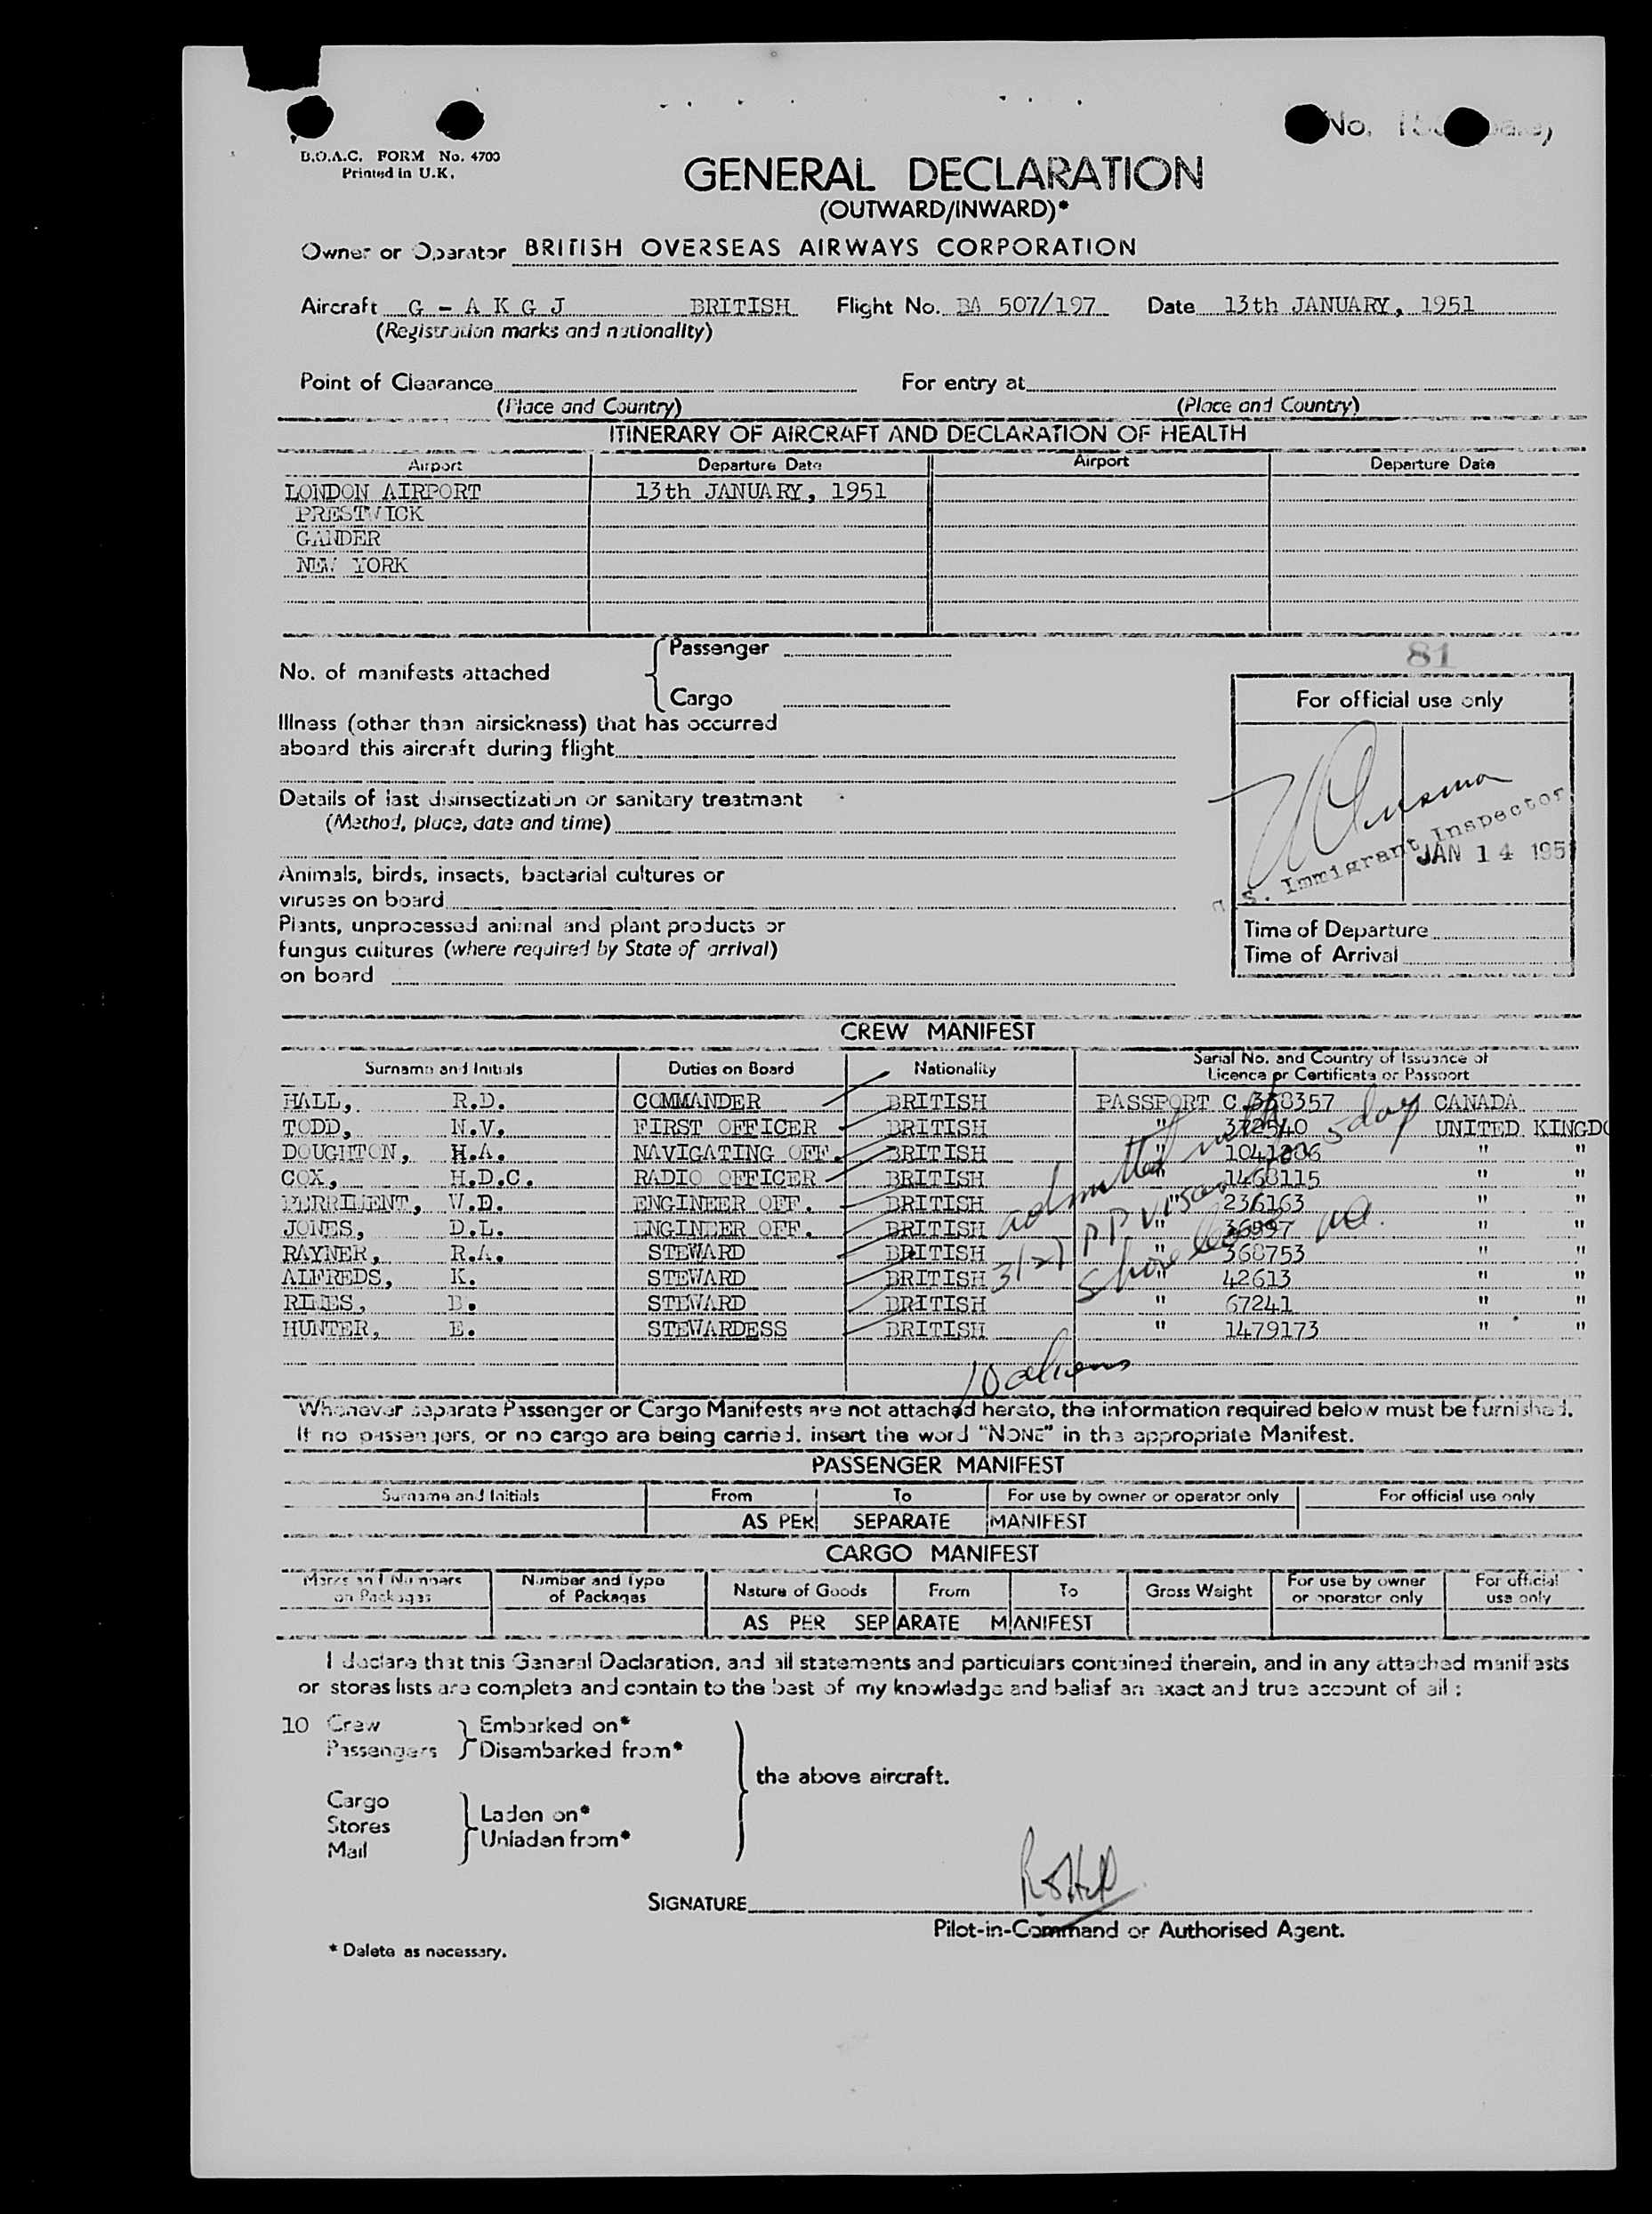 No.
B.O.A.C. FORM No. 4700
Printed in U.K.
GENERAL DECLARATION
(OUTWARD/INWARD)*
Owner or Operator BRITISH OVERSEAS AIRWAYS CORPORATION
Aircraft G - A K G J BRITISH Flight No. BA 507/197 Date 13th JANUARY, 1951
(Registration marks and nationality)
Point of Clearance For entry at
(Place and Country) (Place and Country)
ITINERARY OF AIRCRAFT AND DECLARATION OF HEALTH
Airport Departure Date Airport Departure Date
LONDON AIRPORT 13th JANUARY, 1951
PRESTWICK
GANDER
NEW YORK
81
No. of manifests attached { Passenger
Cargo
For official use only
Illness (other than airsickness) that has occurred
aboard this aircraft during flight
Details of last disinsectization or sanitary treatment
(Method, place, date and time)
S. Immigrant Inspector
JAN 14 195
Animals, birds, insects, bacterial cultures or
viruses on board
Plants, unprocessed animal and plant products or
fungus cultures (where required by State of arrival)
on board
Time of Departure
Time of Arrival
CREW MANIFEST
Surname and Initials Duties on Board Nationality Serial No. and Country of Issuance of
Licence or Certificate or Passport
HALL, R.D. COMMANDER BRITISH PASSPORT C 338357 CANADA
TODD, N.V. FIRST OFFICER BRITISH " 372540 UNITED KINGDO
DOUGHTON, H.A. NAVIGATING OFF. BRITISH " 1041206 " "
COX, H.D.C. RADIO OFFICER BRITISH 1468115 " "
W.D. ENGINEER OFF. BRITISH " 236163 " "
JONES, D.L. ENGINEER OFF. BRITISH " " "
RAYNER, R.A. STEWARD BRITISH " 368753 " "
ALFREDS, K. STEWARD BRITISH " 42613 " "
STEWARD BRITISH " 67241 " "
HUNTER, E. STEWARDESS BRITISH " 1479173 " "
admitted
3/27 PP visa 5 day
shore leave
10 aliens
Whenever separate Passenger or Cargo Manifests are not attached hereto, the information required below must be furnished.
If no passengers, or no cargo are being carried, insert the word "NONE" in the appropriate Manifest.
PASSENGER MANIFEST
Surname and Initials From To For use by owner or operator only For official use only
AS PER SEPARATE MANIFEST
CARGO MANIFEST
Marks and Numbers on Packages Number and Type of Packages Nature of Goods From To Gross Weight For use by owner or operator only For official use only
AS PER SEPARATE MANIFEST
I declare that this General Declaration, and all statements and particulars contained therein, and in any attached manifests
or stores lists are complete and contain to the best of my knowledge and belief an exact and true account of all :
10 Crew } Embarked on*
Passengers Disembarked from*
the above aircraft.
Cargo
Stores } Laden on*
Mail Unladen from*
SIGNATURE
Pilot-in-Command or Authorised Agent.
* Delete as necessary.